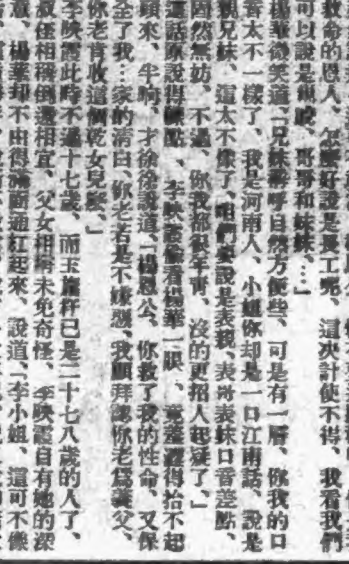 救命的恩人、怎麽好說是長工呢、這決計使不得、我看我們
可以說是親戚、哥哥和妹妹、…」
楊華微笑道、「兄妹稱呼自然方便些、可是有一層、你我的口
音太不一樣了、我是河南人、小姐你却是一口江南話、說是
親兄妹、這太不像了、咱們要說是表親、表哥表妹口音差點、
固然無妨、不過、你我都很年靑、沒的更招人起疑了、」
這話原說得 李映霞偷看楊華一眼、竟羞澀得抬不起
頭來、半晌、才徐徐說道、「楊恩公、你救了我的性命、又保
全了我…家的淸白、你老若是不嫌惡、我願拜認你老爲義父、
你老肯收這個乾女兒麽、」
李映霞此時不過十七歲、而玉旛杆已是二十七八歲的人了、
叔侄相稱倒還相宜、父女相稱未免奇怪、李映霞自有她的深
意、楊華却不由得 通紅起來、說道、「李小姐、這可不像